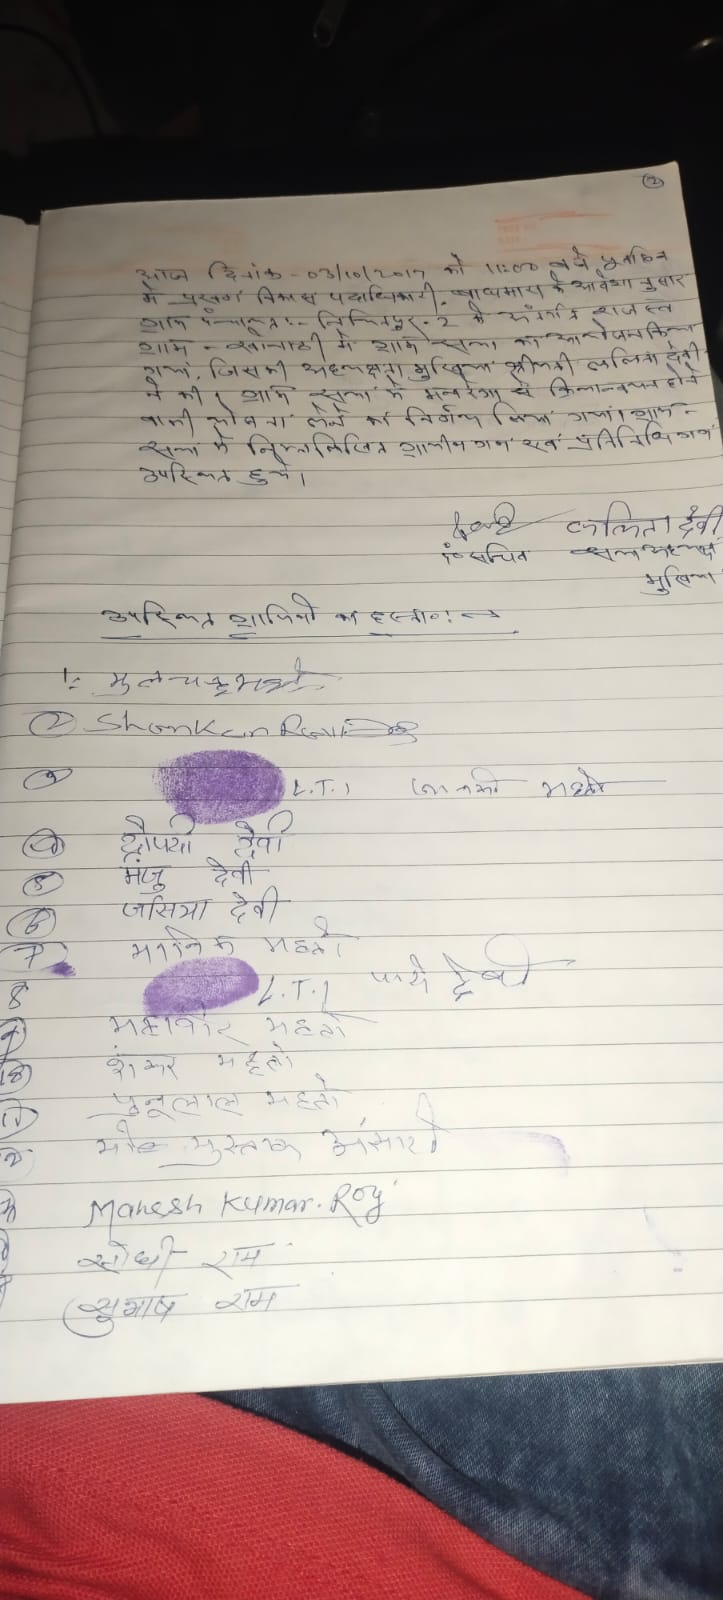 2
आज दिनांक - 03/10/2017 को 11:00 बजे पूर्वाहन
में प्रखण्ड विकास पदाधिकारी, के आदेशानुसार
ग्राम पंचायत :- 2 के अंतर्गत राजस्व
ग्राम - में ग्राम सभा का आयोजन किया
गया, जिसकी अध्यक्षता मुखिया श्रीमती ललिता देवी
ने की। ग्राम सभा में मनरेगा से क्रियान्वयन होने
वाली योजना लेने का निर्णय लिया गया। ग्राम -
सभा में निम्नलिखित ग्रामीण गण एवं प्रतिनिधि गण
उपस्थित हुये।
ललिता देवी
पं० सचिव सभा अध्यक्ष
मुखिया
उपस्थित ग्रामिणों का हस्ता० :-
1:
2 Shankar
L.T.I जानकी महतो
4 द्रौपदी देवी
5 मंजु देवी
6 जसिया देवी
7 मानिक महतो
8 L.T.I देवी
महावीर महतो
शंकर महतो
पुनूलाल महतो
मो० मुस्ताक अंसारी
Mahesh Kumar. Roy
राम
सुभाष राम